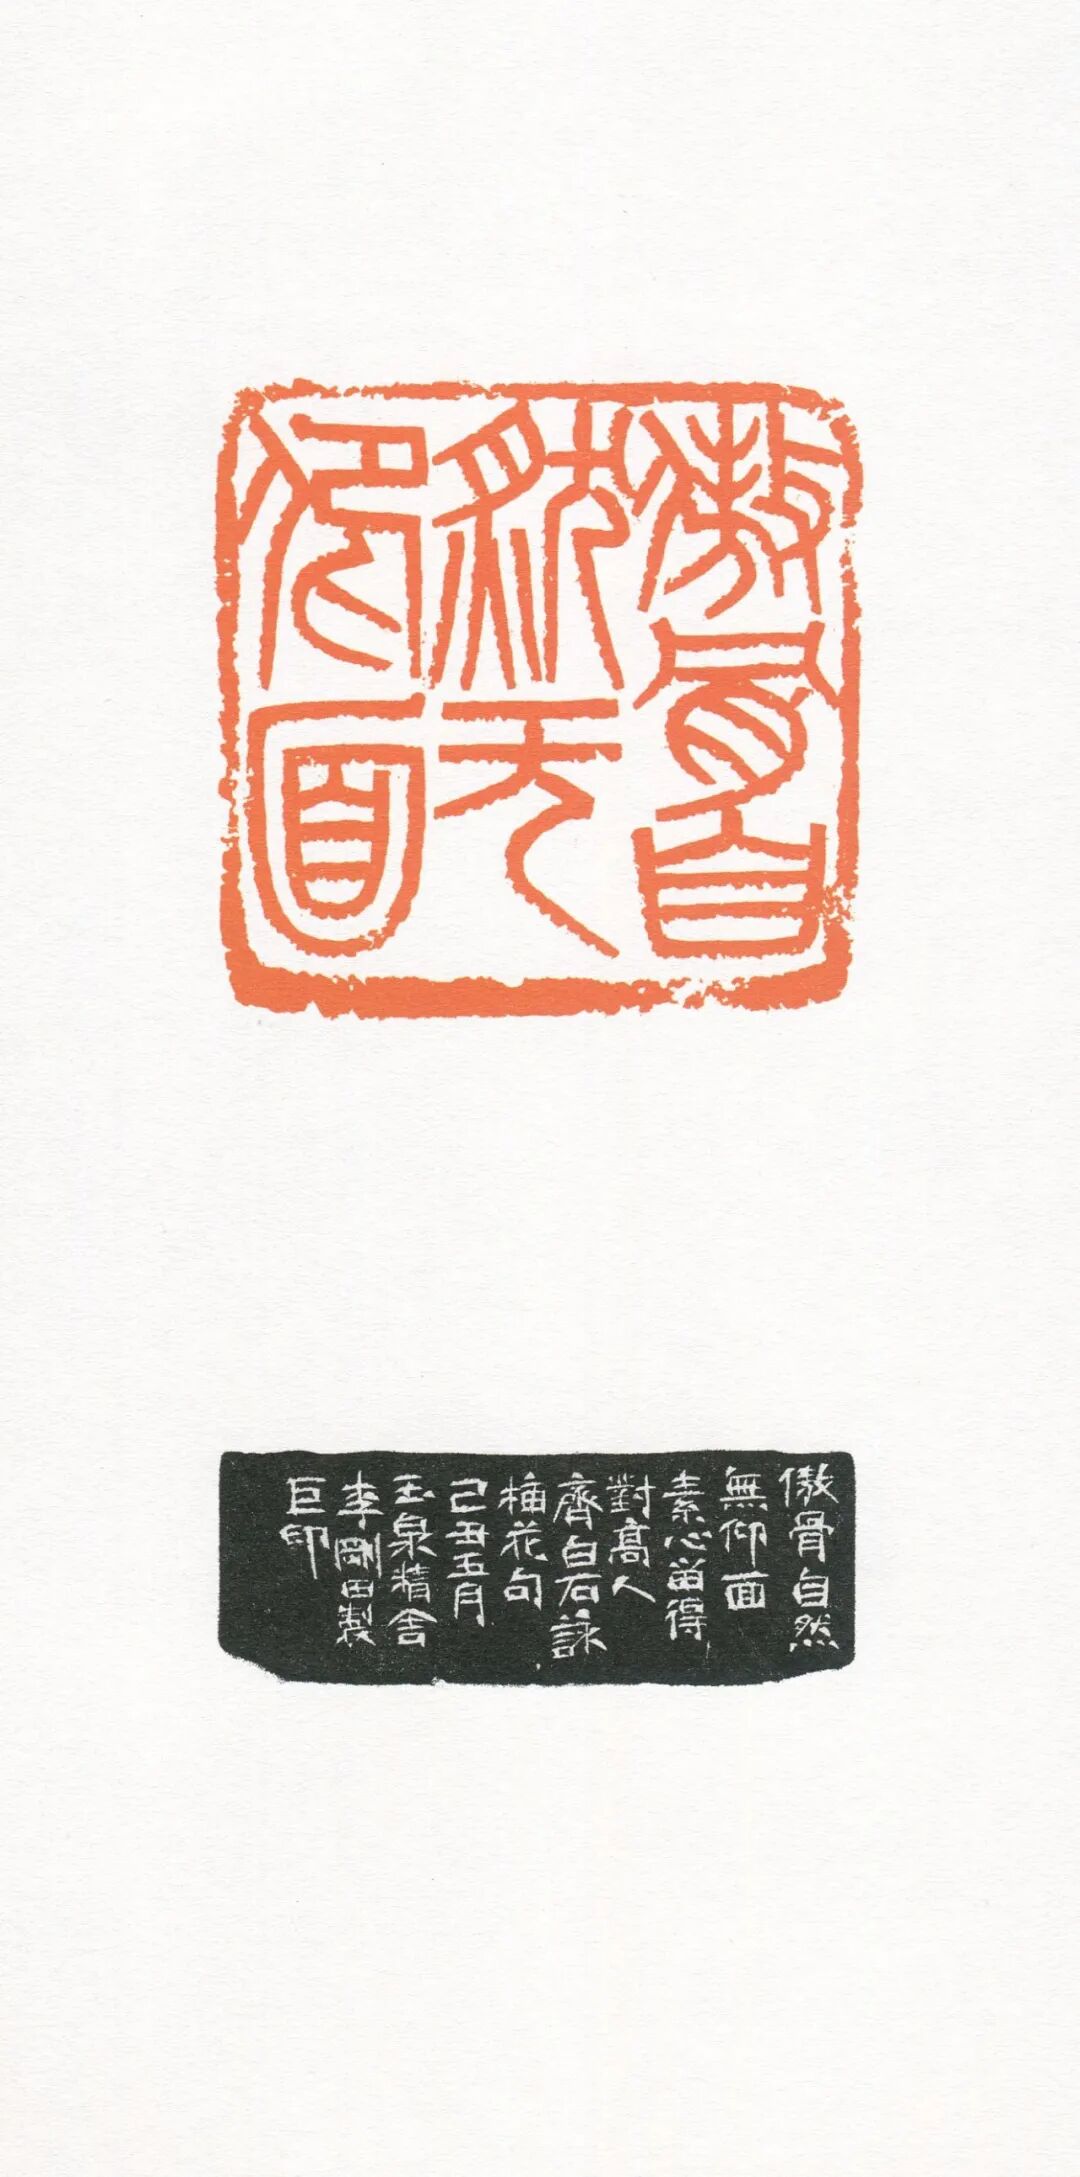 傲骨自
然无
仰面
傲骨自然
無仰面
素心留得
對高人
齊白石詠
梅花句
己丑五月
玉泉精舍
李剛田製
巨印